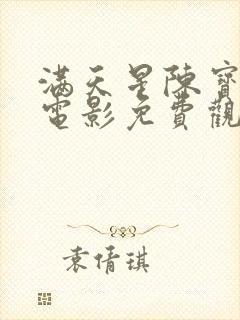 滿天星陳寶
電影免費觀
袁倩琪